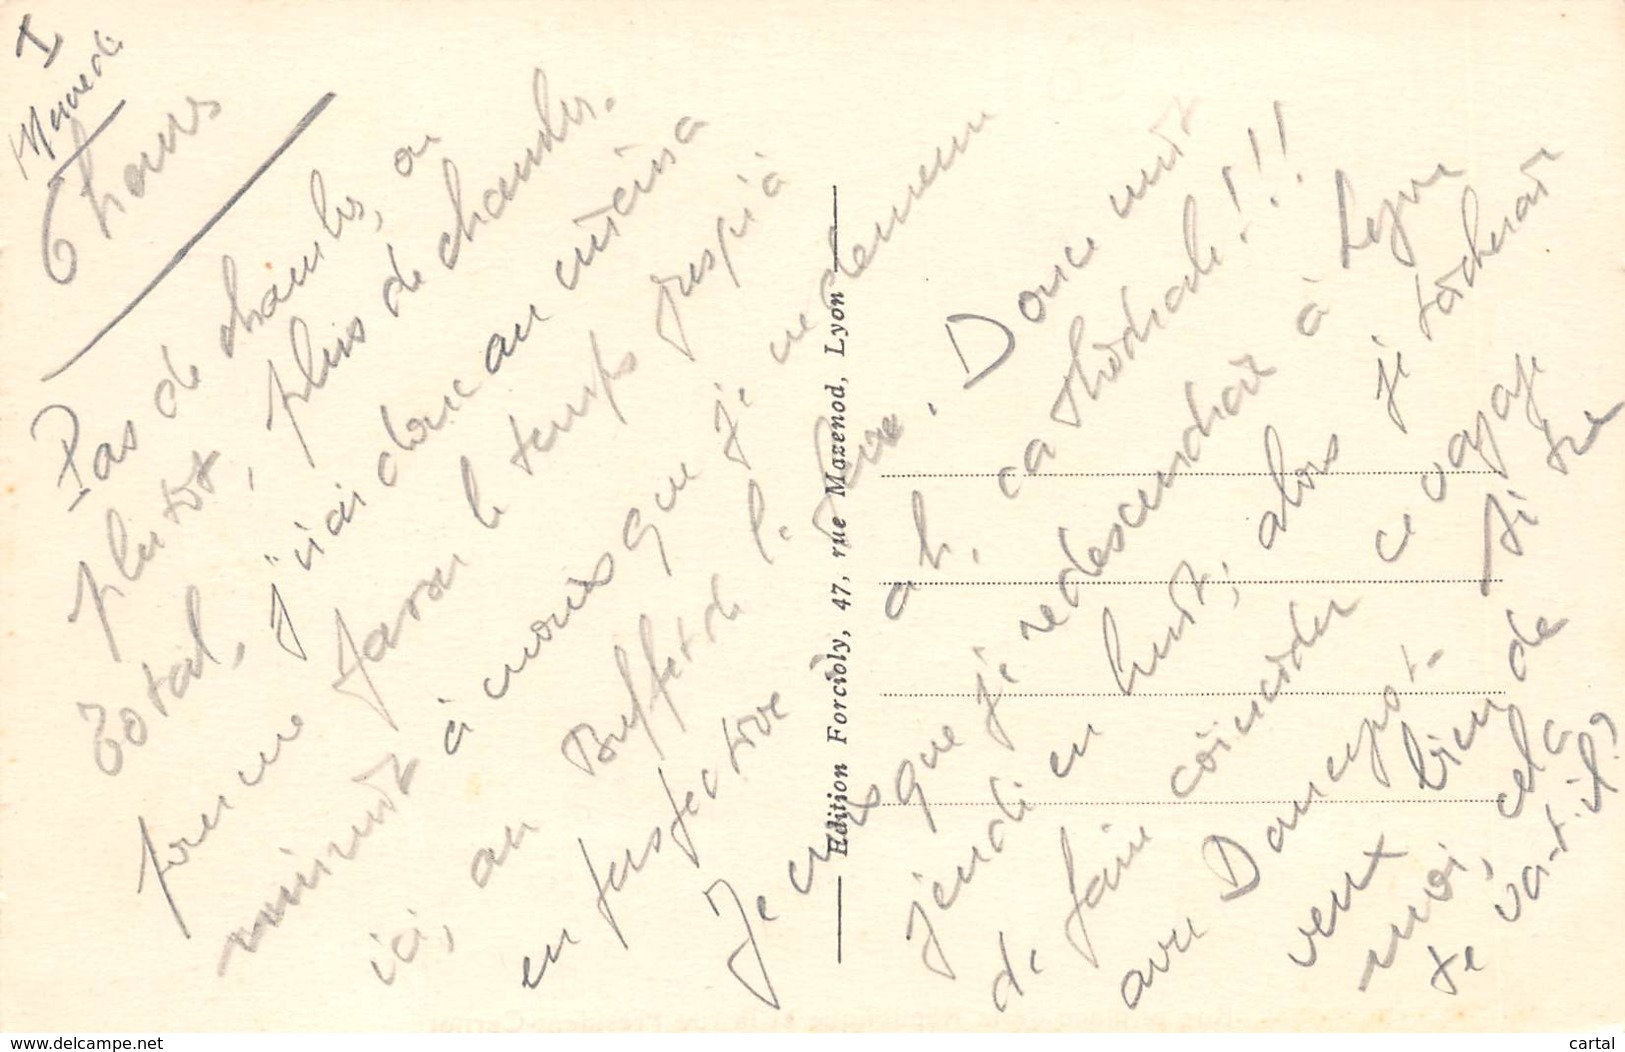 I
Mercredi
6 heures
Pas de chambres, ou
plutôt, plus de chambres.
Total, j'irai donc au cinéma
prendre le temps jusqu'à
minuit à moins que je ne demeure
ici, au Buffet de la Gare. Douce nuit
en perspective ah, ca théodiale!!!
Je crois que je redescendrai à Lyon
jeudi en huit, alors je tâcherai
de faire coïncider ce voyage
avec Dancepot. si tu
veux bien de
moi, cela
te va-t-il?
Edition Forcioly, 47, rue Mazenod, Lyon
www.delcampe.net
cartal